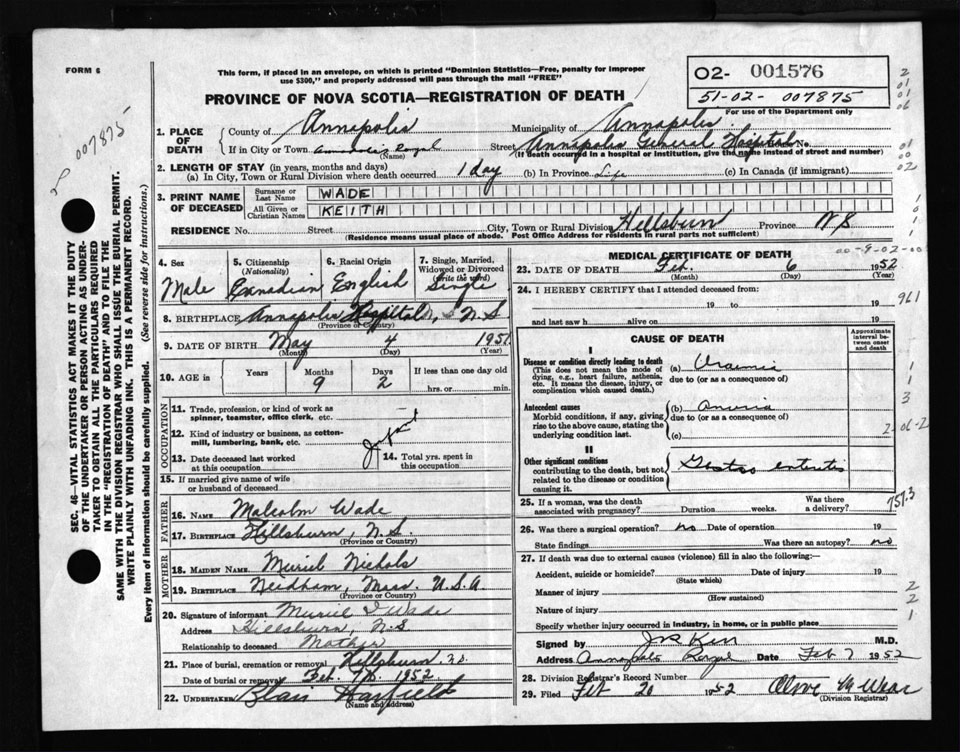 FORM 6
This form, if placed in an envelope, on which is printed "Dominion Statistics—Free, penalty for improper
use $300," and properly addressed will pass through the mail "FREE"
PROVINCE OF NOVA SCOTIA—REGISTRATION OF DEATH
02- 001576
51-02- 007875
For use of the Department only
007875
1. PLACE OF DEATH
County of Annapolis Municipality of Annapolis
If in City or Town Annapolis Royal (Name) Street Annapolis General Hospital No.
(If death occurred in a hospital or institution, give the name instead of street and number)
2. LENGTH OF STAY (in years, months and days)
(a) In City, Town or Rural Division where death occurred 1 day (b) In Province Life (c) In Canada (if immigrant)
3. PRINT NAME OF DECEASED
Surname or Last Name WADE
All Given or Christian Names KEITH
RESIDENCE No. Street City, Town or Rural Division Hillsburn Province N S
(Residence means usual place of abode. Post Office Address for residents in rural parts not sufficient)
4. Sex Male
5. Citizenship (Nationality) Canadian
6. Racial Origin English
7. Single, Married, Widowed or Divorced (Write the word) Single
8. BIRTHPLACE Annapolis Hospital, N S
(Province or Country)
9. DATE OF BIRTH May 4 1951
(Month) (Day) (Year)
10. AGE in Years Months 9 Days 2 If less than one day old hrs. or min.
OCCUPATION
11. Trade, profession, or kind of work as spinner, teamster, office clerk, etc.
12. Kind of industry or business, as cotton-mill, lumbering, bank, etc.
Infant
13. Date deceased last worked at this occupation
14. Total yrs. spent in this occupation
15. If married give name of wife or husband of deceased
FATHER
16. NAME Malcolm Wade
17. BIRTHPLACE Hillsburn, N.S.
(Province or Country)
MOTHER
18. MAIDEN NAME Muriel Nichols
19. BIRTHPLACE Needham, Mass U.S.A
(Province or Country)
20. Signature of informant Muriel I Wade
Address Hillsburn, N.S
Relationship to deceased Mother
21. Place of burial, cremation or removal Hillsburn N.S.
Date of burial or removal Feb. 7th. 1952.
22. UNDERTAKER Blair
(Name and address)
MEDICAL CERTIFICATE OF DEATH
00-9-02-00
23. DATE OF DEATH Feb. 6 1952
(Month) (Day) (Year)
24. I HEREBY CERTIFY that I attended deceased from:
19 to 19
961
and last saw h alive on 19
CAUSE OF DEATH
Approximate interval between onset and death
I
Disease or condition directly leading to death
(This does not mean the mode of dying, e.g., heart failure, asthenia, etc. It means the disease, injury, or complication which caused death.)
(a) Uraemia
due to (or as a consequence of)
Antecedent causes
Morbid conditions, if any, giving rise to the above cause, stating the underlying condition last.
(b) Anuria
due to (or as a consequence of)
(c)
II
Other significant conditions
contributing to the death, but not related to the disease or condition causing it.
Gastro enteritis
757.3
25. If a woman, was the death associated with pregnancy? Duration weeks. Was there a delivery?
26. Was there surgical operation? no Date of operation 19
State findings Was there an autopsy? no
27. If death was due to external causes (violence) fill in also the following:
Accident, suicide or homicide? Date of injury 19
(State which)
Manner of injury
(How sustained)
Nature of injury
Specify whether injury occurred in industry, in home, or in public place
Signed by M.D.
Address Annapolis Royal Date Feb 7 1952
28. Division Registrar's Record Number
29. Filed Feb 20 1952 Olive M Wear
(Division Registrar)
SEC. 46—VITAL STATISTICS ACT MAKES IT THE DUTY
OF THE UNDERTAKER OR PERSON ACTING AS UNDER-
TAKER TO OBTAIN ALL THE PARTICULARS REQUIRED
IN THE "REGISTRATION OF DEATH" AND TO FILE THE
SAME WITH THE DIVISION REGISTRAR WHO SHALL ISSUE THE BURIAL PERMIT.
WRITE PLAINLY WITH UNFADING INK. THIS IS A PERMANENT RECORD.
Every item of information should be carefully supplied. (See reverse side for instructions.)